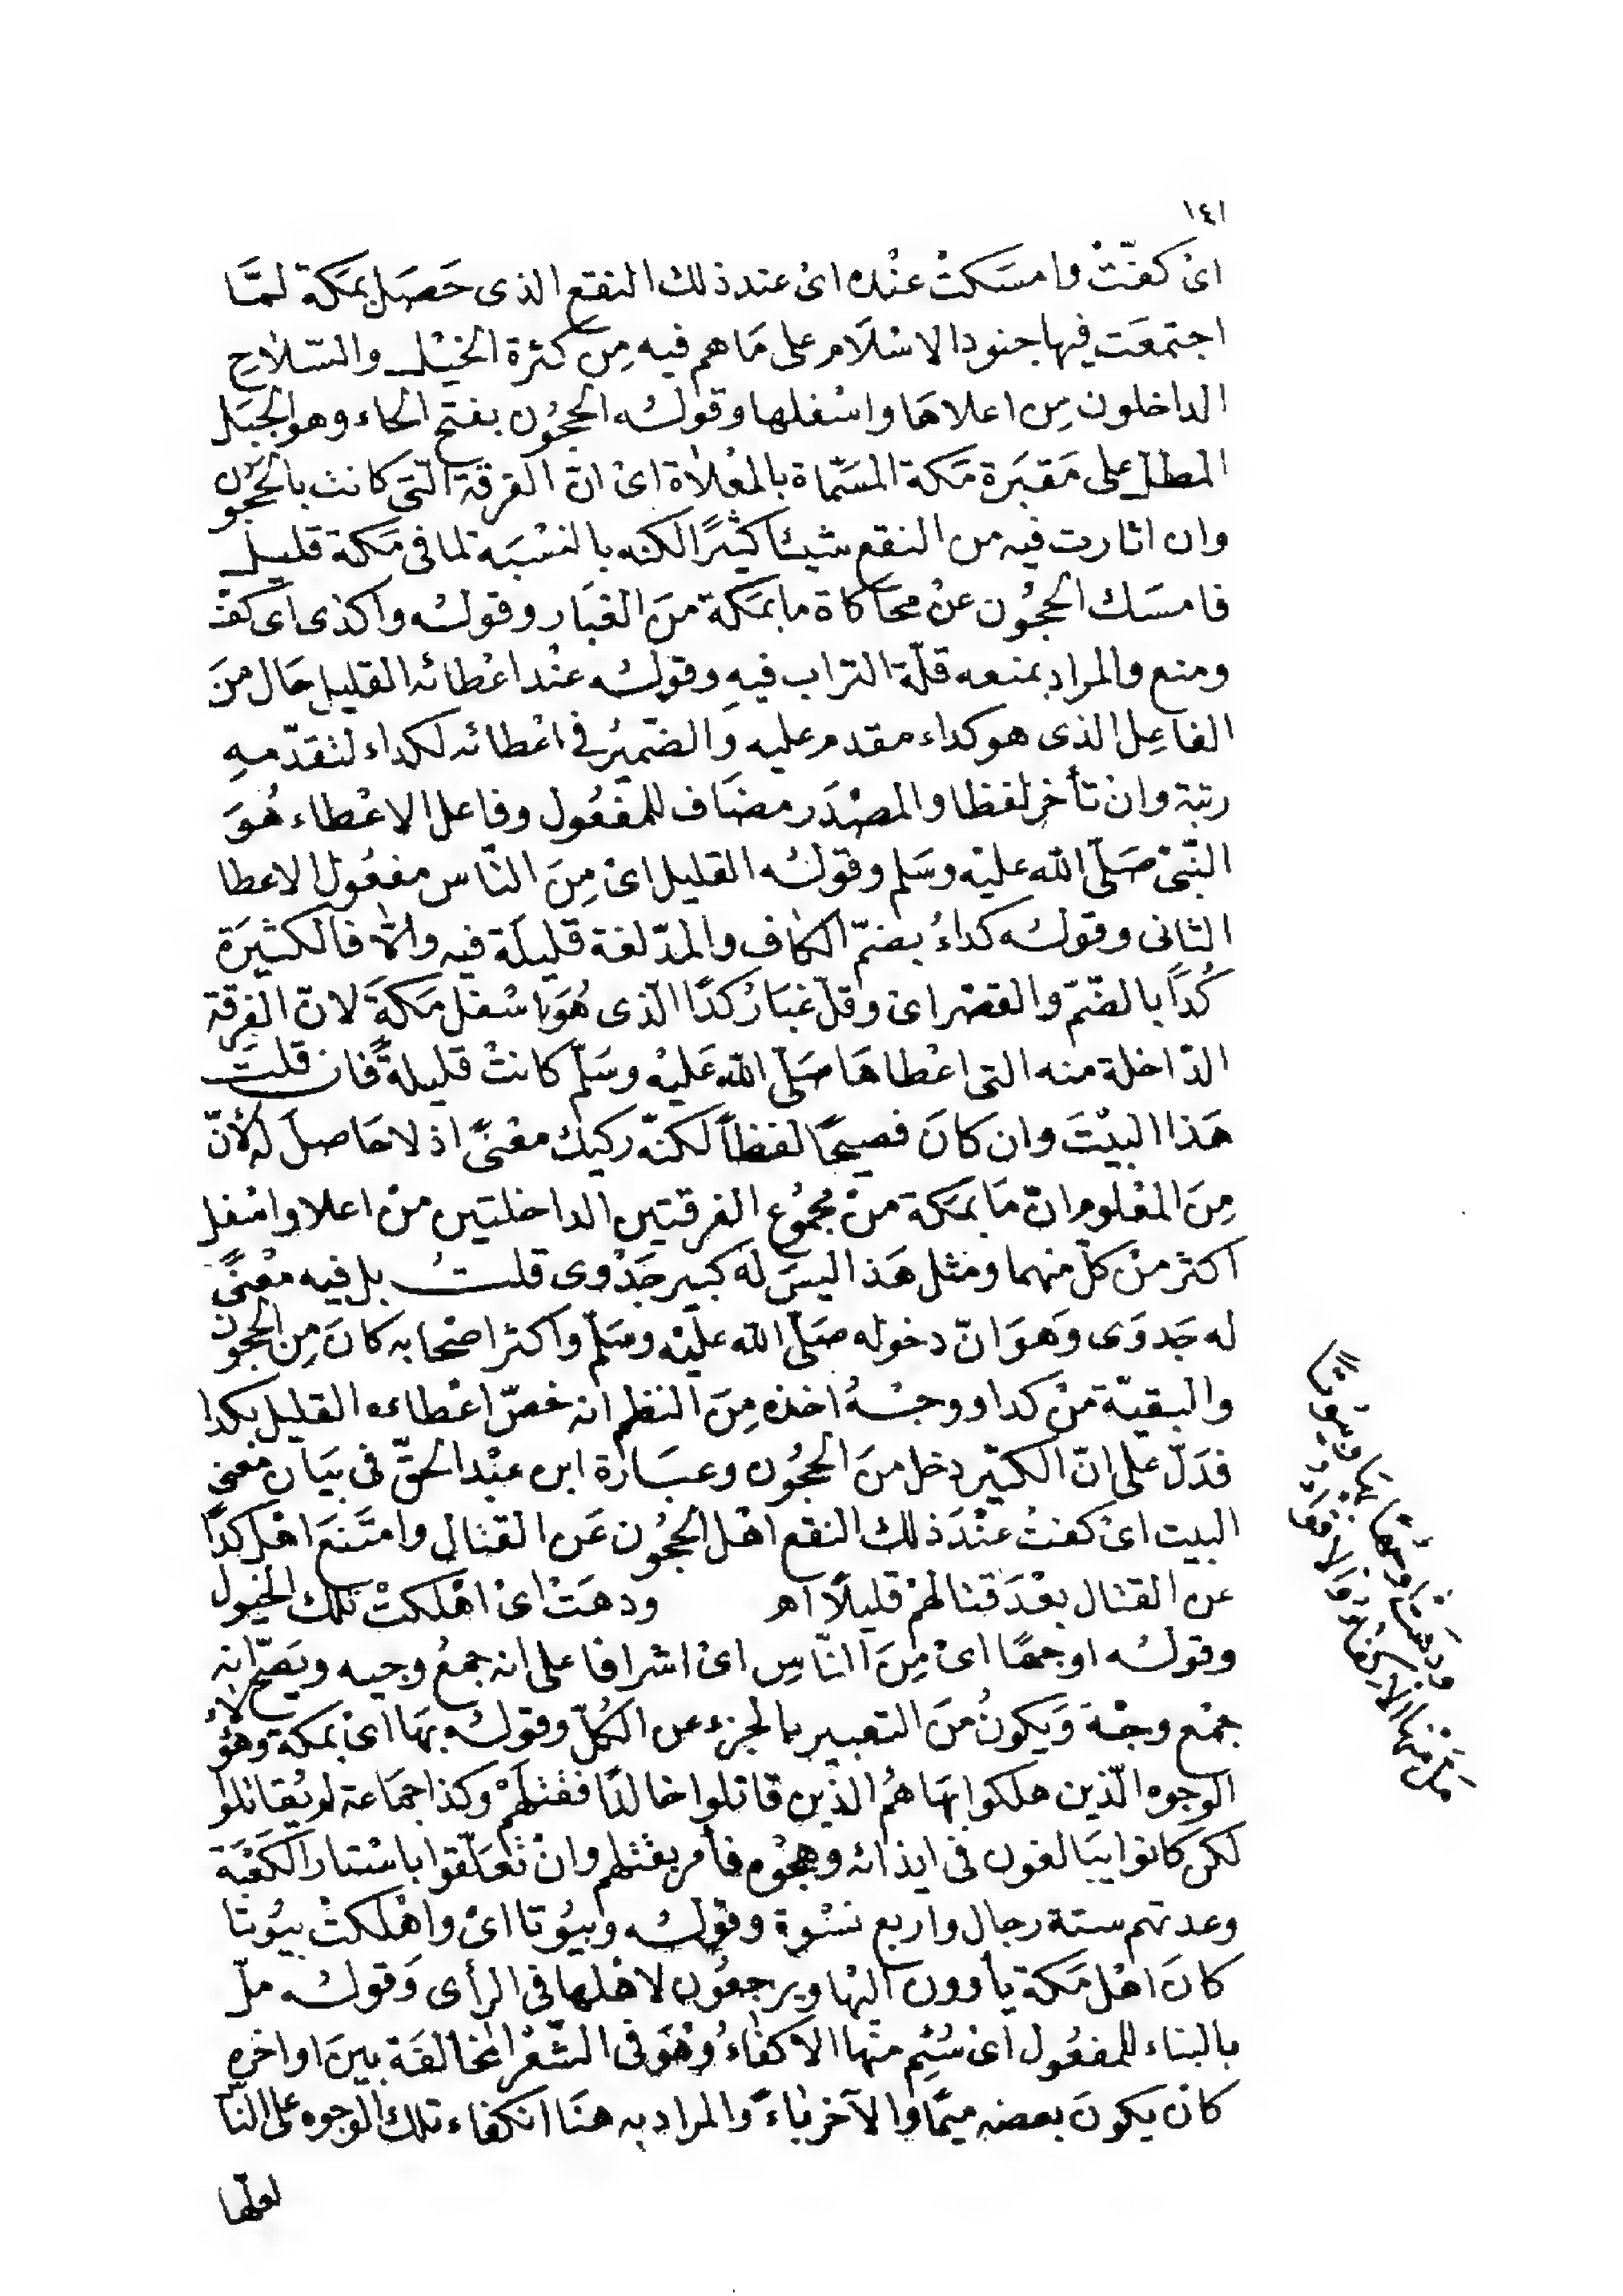 ١٤١
اىْ كفّتْ وامسَكتْ عنْده اىْ عند ذلك النقع الذى حَصَل بمَكة لمَّا
اجتمعَت فيها جنود الاسْلَام على مَا هم فيه مِن كثرة الخيْل والسّلاح
الداخلون مِن اعلاهَا واسْفلها وقولُه الحجُون بفتح الحاء وهو الجبَل
المطل على مَقبَرة مَكة المسَمّاة بالمعْلاة اىْ انّ الفرقة التى كانت بالحجُون
وان اثارت فيه من النقع شيئا كثيرًا لكنه بالنسْبَة لما فى مَكة قليل
فامسَك الحجُون عنْ محاكاة ما بمَكة منَ الغبَار وقولُه واكدى اى كفّ
ومنع والمراد بمنعه قلّة التراب فيهِ وقولُه عنْد اعْطائه القليل حَال منَ
الفاعِل الذى هو كداء مقدم عليه والضّميُر فى اعْطائه لكداء لتقدّمهِ
رتبة وانْ تأخر لفظا والمصْدَر مضَاف للمفعُول وفاعل الاعْطاء هُوَ
النّبىْ صَلّى الله عليْه وسَلم وقولُه القليل اىْ مِنَ النّاس مفعُول الاعطا
الثانى وقولُه كداءُ بضمّ الكاف والمدّ لغة قليلَة فيه والّا فالكثيرَة
كُدًا بالضّمّ والقصْر اىْ وقلّ غبَارُ كدًا الّذى هُوَ اسْفل مَكةَ لانّ الفِرقة
الدّاخلة منه التى اعْطاهَا صَلّى الله عَليْه وسَلّم كانتْ قليلةً فان قلت
هَذا البيْتَ وان كانَ فصيحًا لفظاً لكنّه ركيك معْنىً اذ لا حَاصلَ له لأنّ
مِنَ المعْلوم انّ مَا بمَكة منْ مجمُوع الفرقتين الداخلتين منْ اعلا واسْفل
اكثر منْ كلّ منهما ومثل هَذا ليسَ لَه كبير جَدْوى قلتُ بل فيه معْنىً
له جَدوَى وَهوَ انّ دخوله صَلّى الله عليْه وسَلّم واكثر اصْحابه كانَ مِن الحجون
والبقيّة منْ كدا ووجْهُ اخذه مِنَ النظم انه خصّ اعْطاءه القليل بكدا
فدَلّ على انّ الكثير دخل منَ الحجُون وعبَارة ابن عبْد الحقّ فى بيَان معنى
البيت اىْ كفتْ عنْدَ ذلك النقع اهْل الحجُون عَن القتال وامتَنعَ اهْل كدًا
عن القتال بعْدَ قتالهمْ قليلًا اهـ ودهَتْ اىْ اهْلكتْ تلك الخيول
وقولُه اوجهًا اىْ مِنَ النّاسِ اىْ اشرافا على انه جمعُ وجيه ويَصحّ انه
جمْع وجْه وَيكونُ منَ التعبير بالجزء عن الكُلّ وقولُه بهَا اىْ بمكة وهؤلاءُ
الوجوه الّذين هلكوا بهَا همُ الذّين قاتلوا خالدًا فقتلهمْ وكذا جمَاعة لم يُقاتلوا
لكن كانوا يبَالغون فى ايذائه وهجْوه فأمر بقتْلهم وانْ تعَلّقوا باسْتار الكَعْبَة
وعدتهم ستة رجال واربع نسْوة وقولُه وبيُوتا اىْ واهْلكتْ بيُوتا
كانَ اهْل مَكة يأوون اليْها ويرجعُون لاهْلها فى الرأى وَقولُه ملّ
بالبناء للمفعُول اىْ سُئِم منْها الاكفاءُ وَهْوَ فى الشّعْر المخالفَة بينَ اواخره
كانْ يكونَ بعضه ميمًا والآخر باءً والمراد به هنَا انكفاء تلك الوجوه على النا
لعلها
ودهتْ اوجهًا بها وبيوتًا
مَلّ منْها الاكفاءُ والاقواءُ